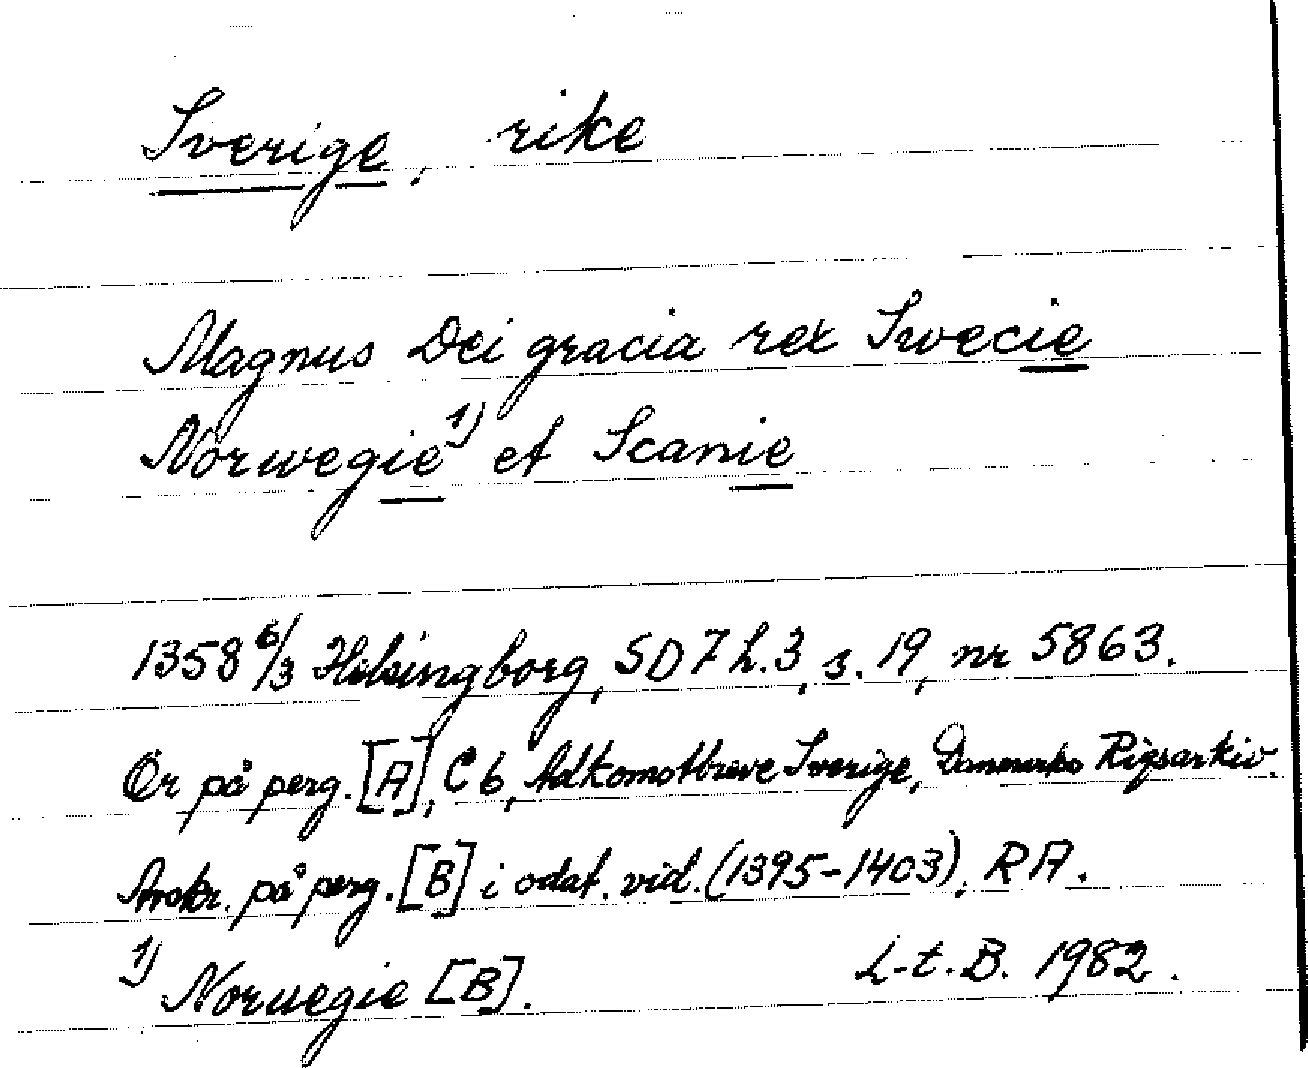 Sverige, rike
Magnus Dei gracia rex Swecie
Norwegie 1) et Scanie
1358 6/3 Helsingborg, SD 7 h.3, s. 19, nr 5863.
Or på perg. [A], C 6, Adkomstbreve Sverige, Danmarks Rigsarkiv.
Avskr. på perg. [B] i odat. vid. (1395-1403), RA.
1) Noruegie [B]. L-t.B. 1982.